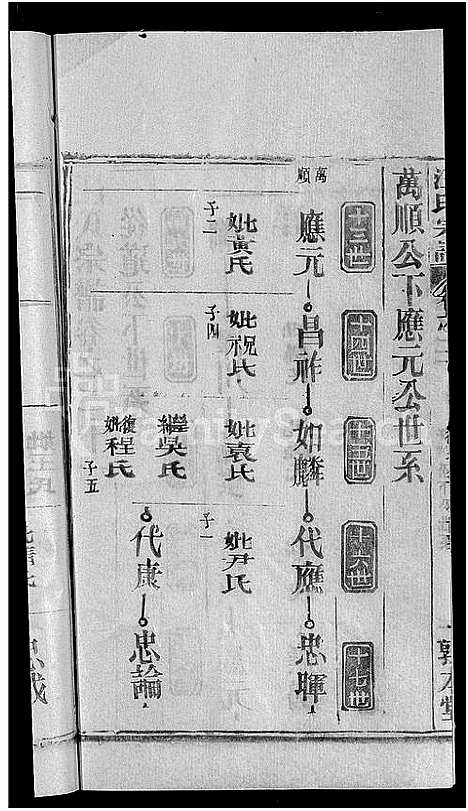 萬順公下應元公世系
十三世
十四世
十五世
十六世
十七世
萬順
應元
昌祚
如麟
代應
忠暉
妣黃氏
子二
妣祝氏
子四
妣袁氏
繼吳氏
復妣程氏
子五
妣尹氏
子一
代康
忠論